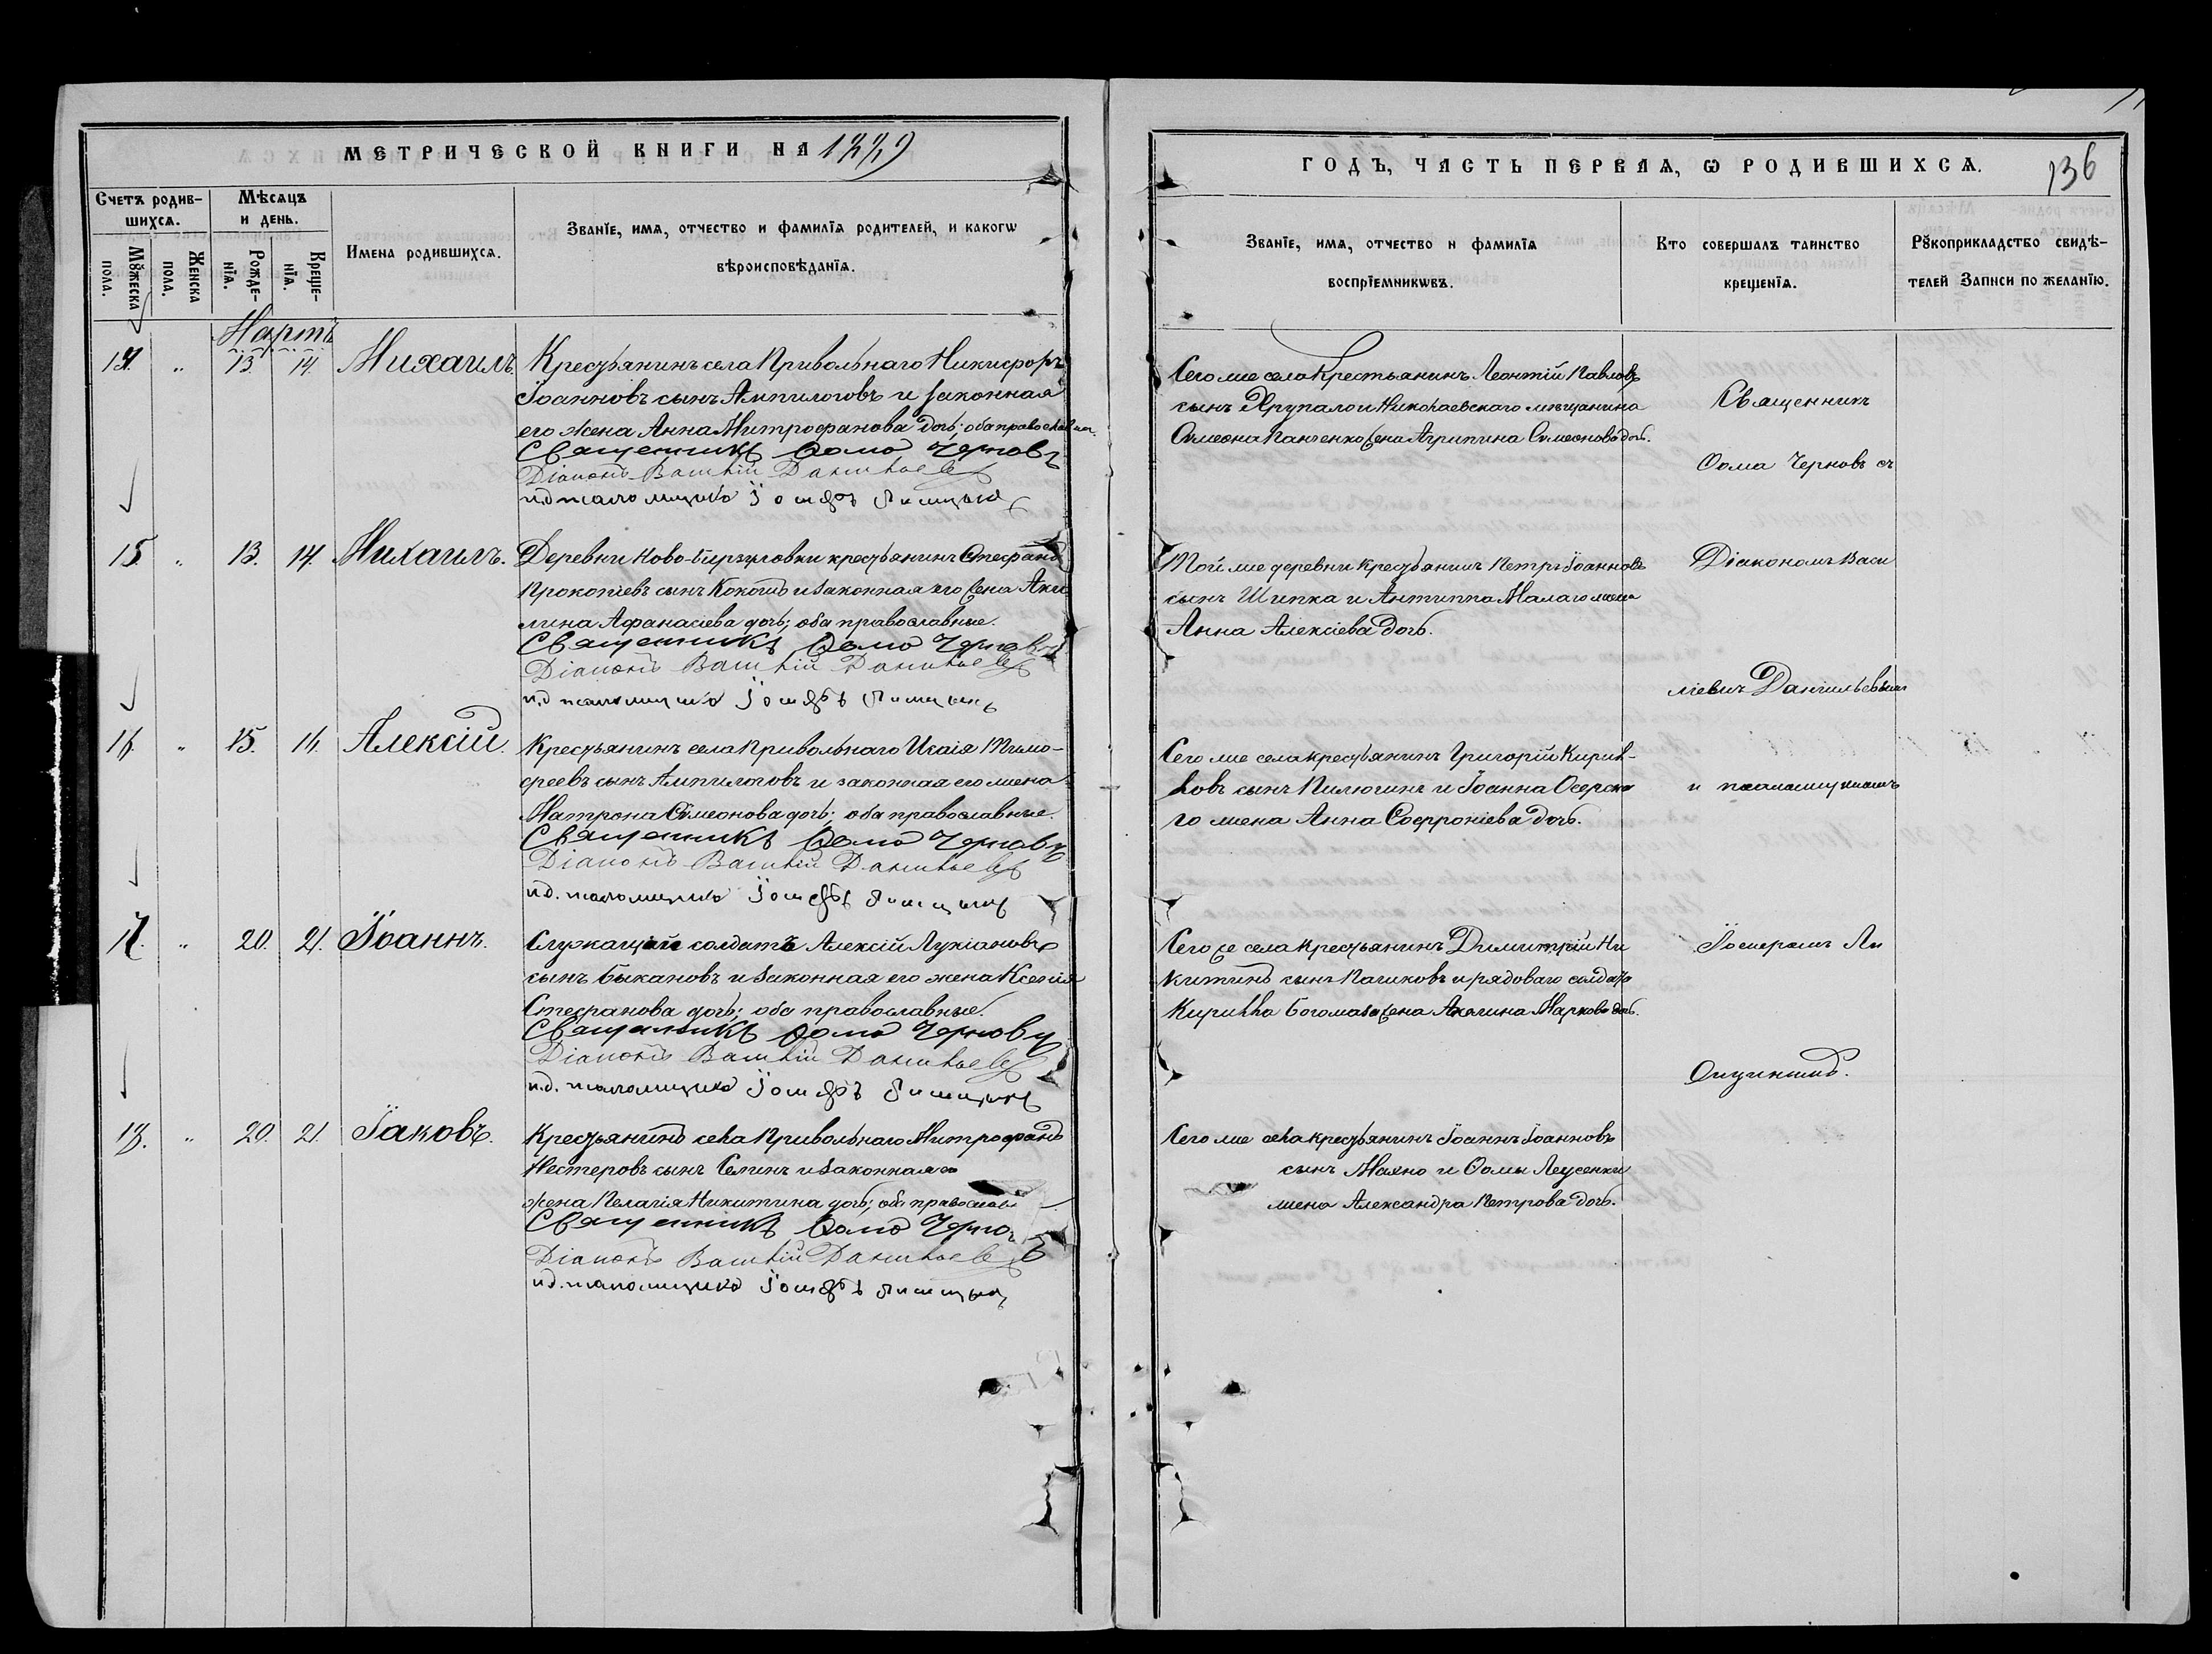 МЕТРИЧЕСКОЙ КНИГИ НА 1889
Счетъ родив-
шихсѧ.
Мѣсѧцъ
и день.
Мꙋжеска
пола.
Женска
пола.
Рожде-
нїѧ.
Креще-
нїѧ.
Имена родившихсѧ.
Званїе, имѧ, отчество и фамилїѧ родителей, и какогѡ
вѣроисповѣданїѧ.
Мартъ
14. " 13. 14. Михаилъ.
Крестьянинъ села Привольнаго Никифоръ
Іоанновъ сынъ Ампилоговъ и законная
его жена Анна Митрофанова дочь; оба православные.
Священникъ Ѳома Черновъ
Діаконъ Василій Данильевъ
и.д. псаломщика Іосифъ
15. " 13. 14. Михаилъ.
Деревни Ново- крестьянинъ Стефанъ
Прокопіевъ сынъ и законная его жена Аки
лина Афанасіева дочь; оба православные.
Священникъ Ѳома Черновъ
Діаконъ Василій Данильевъ
и.д. псаломщика Іосифъ
16. " 15. 16. Алексій.
Крестьянинъ села Привольнаго Исаія Тимо-
феевъ сынъ Ампилоговъ и законная его жена
Матрона Сѵмеонова дочь; оба православные.
Священникъ Ѳома Черновъ
Діаконъ Василій Данильевъ
и.д. псаломщика Іосифъ
17. " 20. 21. Іоаннъ.
Служащій солдатъ Алексій Лукіановъ
сынъ Быкановъ и законная его жена Ксенія
Стефанова дочь; оба православные.
Священникъ Ѳома Черновъ
Діаконъ Василій Данильевъ
и.д. псаломщика Іосифъ
18. " 20. 21. Іаковъ.
Крестьянинъ села Привольнаго Митрофанъ
Нестеровъ сынъ Селинъ и законная его
жена Пелагія Никитина дочь; оба православ
Священникъ Ѳома Черновъ
Діаконъ Василій Данильевъ
и.д. псаломщика Іосифъ
ГОДЪ, ЧАСТЬ ПЕРВАѦ, Ѡ РОДИВШИХСѦ.
136
Званїе, имѧ, отчество и фамилїѧ
воспрїемникѡвъ.
Кто совершалъ таинство
крещенїѧ.
Рꙋкоприкладство свидѣ-
телей записи по желанїю.
Сего же села крестьянинъ Леонтій Павловъ
сынъ Хрупало и Николаевскаго мѣщанина
Сѵмеона Панченко жена Агрипина Сѵмеонова дочь.
Той же деревни крестьянинъ Петръ Іоанновъ
сынъ Шипка и Антиппа жена
Анна Алексіева дочь.
Сего же села крестьянинъ Григорій Кирил-
ловъ сынъ Пилюгинъ и Іоанна
го жена Анна Софроніева дочь.
Сего же села крестьянинъ Димитрій Ни
китинъ сынъ и рядоваго солдата
Кирилла Богомаза жена Акилина Маркова дочь.
Сего же села крестьянинъ Іоаннъ Іоанновъ
сынъ Махно и Ѳомы Леусенки
жена Александра Петрова дочь.
Священникъ
Ѳома Черновъ съ
Діакономъ Васи
ліемъ Данильевымъ
и псаломщикомъ
Іосифомъ Ли